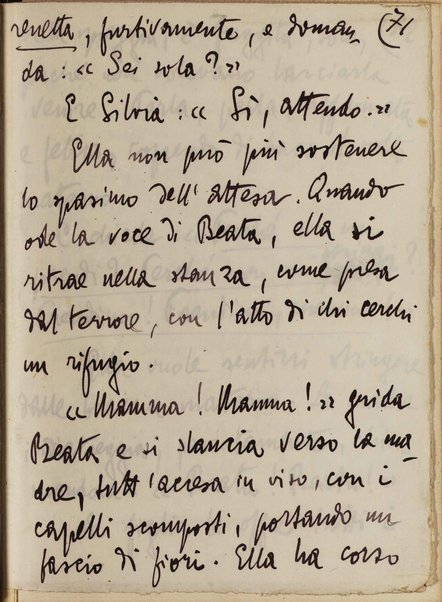 renetta, furtivamente, e doman= (71
da: « Sei sola? »
E Silvia: « Sì, attendo. »
Ella non può più sostenere
lo spasimo dell'attesa. Quando
ode la voce di Beata, ella si
ritrae nella stanza, come presa
dal terrore, con l'atto di chi cerchi
un rifugio.
« Mamma! Mamma! » grida
Beata e si slancia verso la ma=
dre, tutt'accesa in viso, con i
capelli scomposti, portando un
fascio di fiori. Ella ha corso